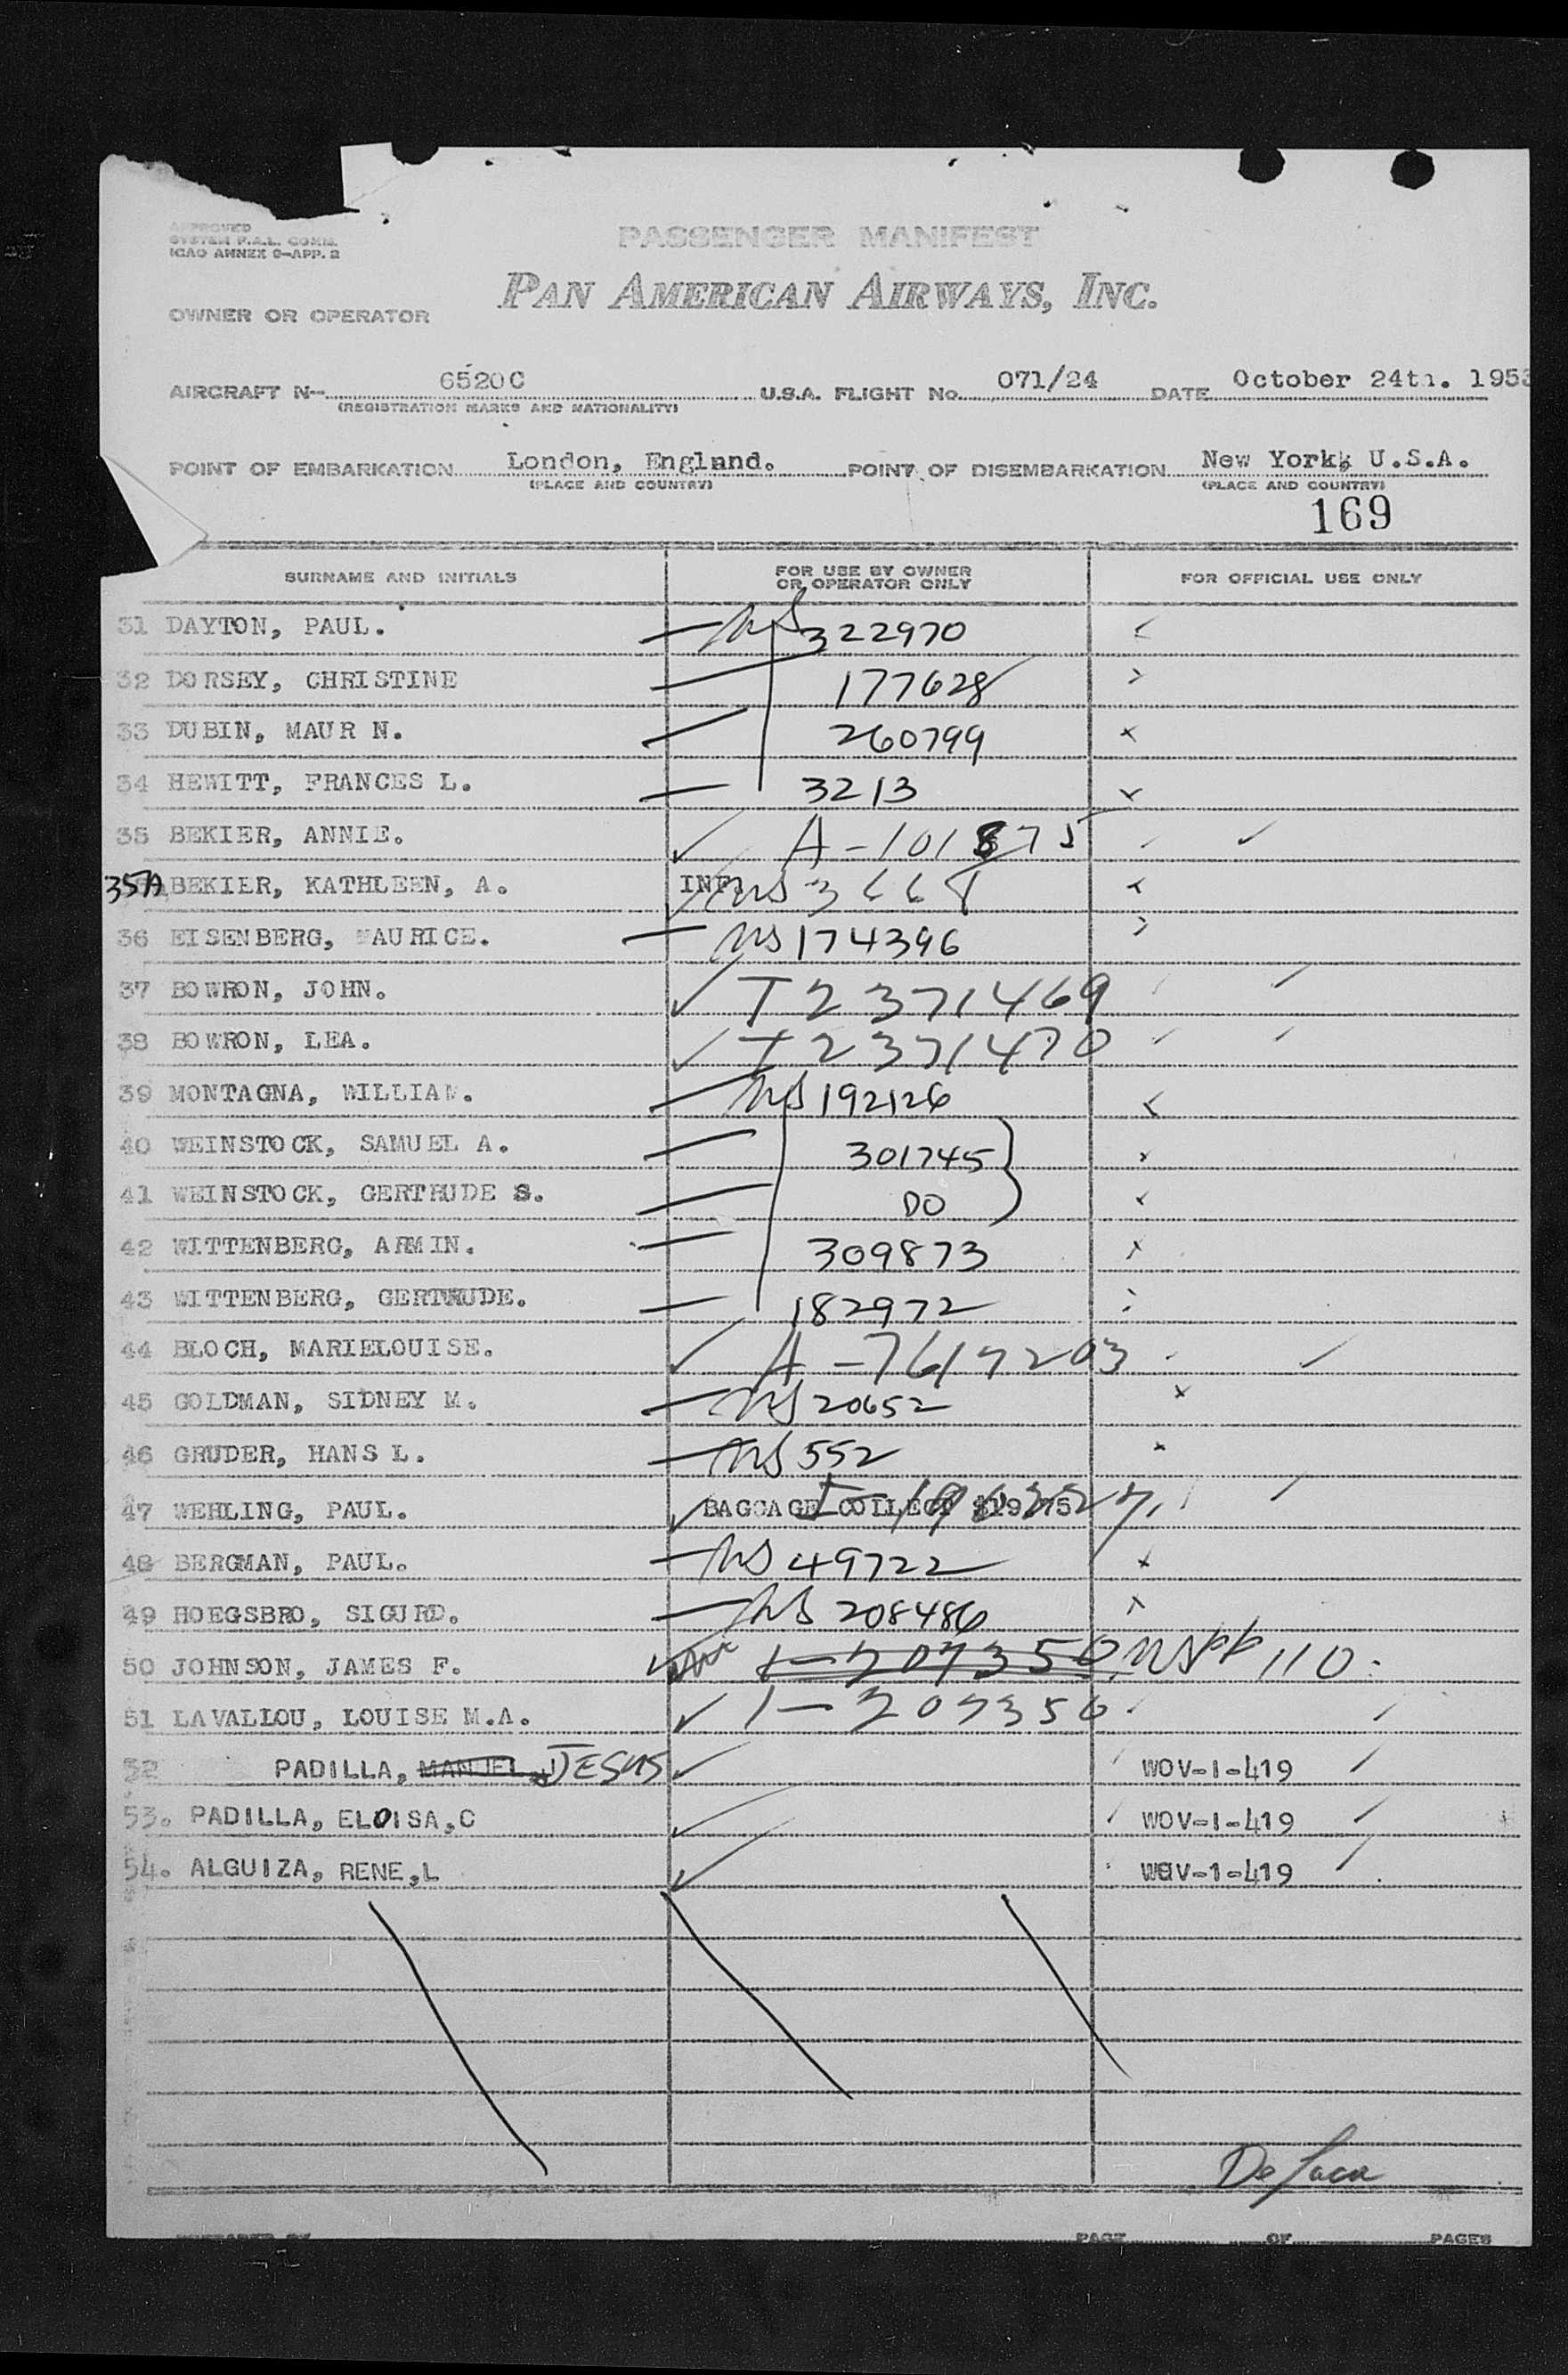 APPROVED
SYSTEM F.A.L. COMM.
ICAO ANNEX 9-APP. 2
PASSENGER MANIFEST
PAN AMERICAN AIRWAYS, INC.
OWNER OR OPERATOR
AIRCRAFT N- 6520C U.S.A. FLIGHT No. 071/24 DATE October 24th. 1953
(REGISTRATION MARKS AND NATIONALITY)
POINT OF EMBARKATION London, England. POINT OF DISEMBARKATION New York, U.S.A.
(PLACE AND COUNTRY) (PLACE AND COUNTRY)
169
SURNAME AND INITIALS FOR USE BY OWNER OR OPERATOR ONLY FOR OFFICIAL USE ONLY
31 DAYTON, PAUL. US 322970
32 DORSEY, CHRISTINE 177628
33 DUBIN, MAUR N. 260799
34 HEWITT, FRANCES L. 3213
35 BEKIER, ANNIE. A-101875
35A BEKIER, KATHLEEN, A. INF. US 3668
36 EISENBERG, MAURICE. US 174396
37 BOWRON, JOHN. T2371469
38 BOWRON, LEA. T2371470
39 MONTAGNA, WILLIAM. US 192126
40 WEINSTOCK, SAMUEL A. 301745
41 WEINSTOCK, GERTRUDE S. DO
42 WITTENBERG, ARMIN. 309873
43 WITTENBERG, GERTRUDE. 182972
44 BLOCH, MARIELOUISE. A-7617203
45 GOLDMAN, SIDNEY M. US 20652
46 GRUDER, HANS L. US 552
47 WEHLING, PAUL. BAGGAGE COLLECT $19.75
48 BERGMAN, PAUL. US 49722
49 HOEGSBRO, SIGURD. US 208486
50 JOHNSON, JAMES F. 1-207350 USPP 110.
51 LAVALLOU, LOUISE M.A. 1-207350
52 PADILLA, MANUEL, JESUS WOV-1-419
53. PADILLA, ELOISA,C WOV-1-419
54. ALGUIZA, RENE,L WOV-1-419
PREPARED BY PAGE OF PAGES